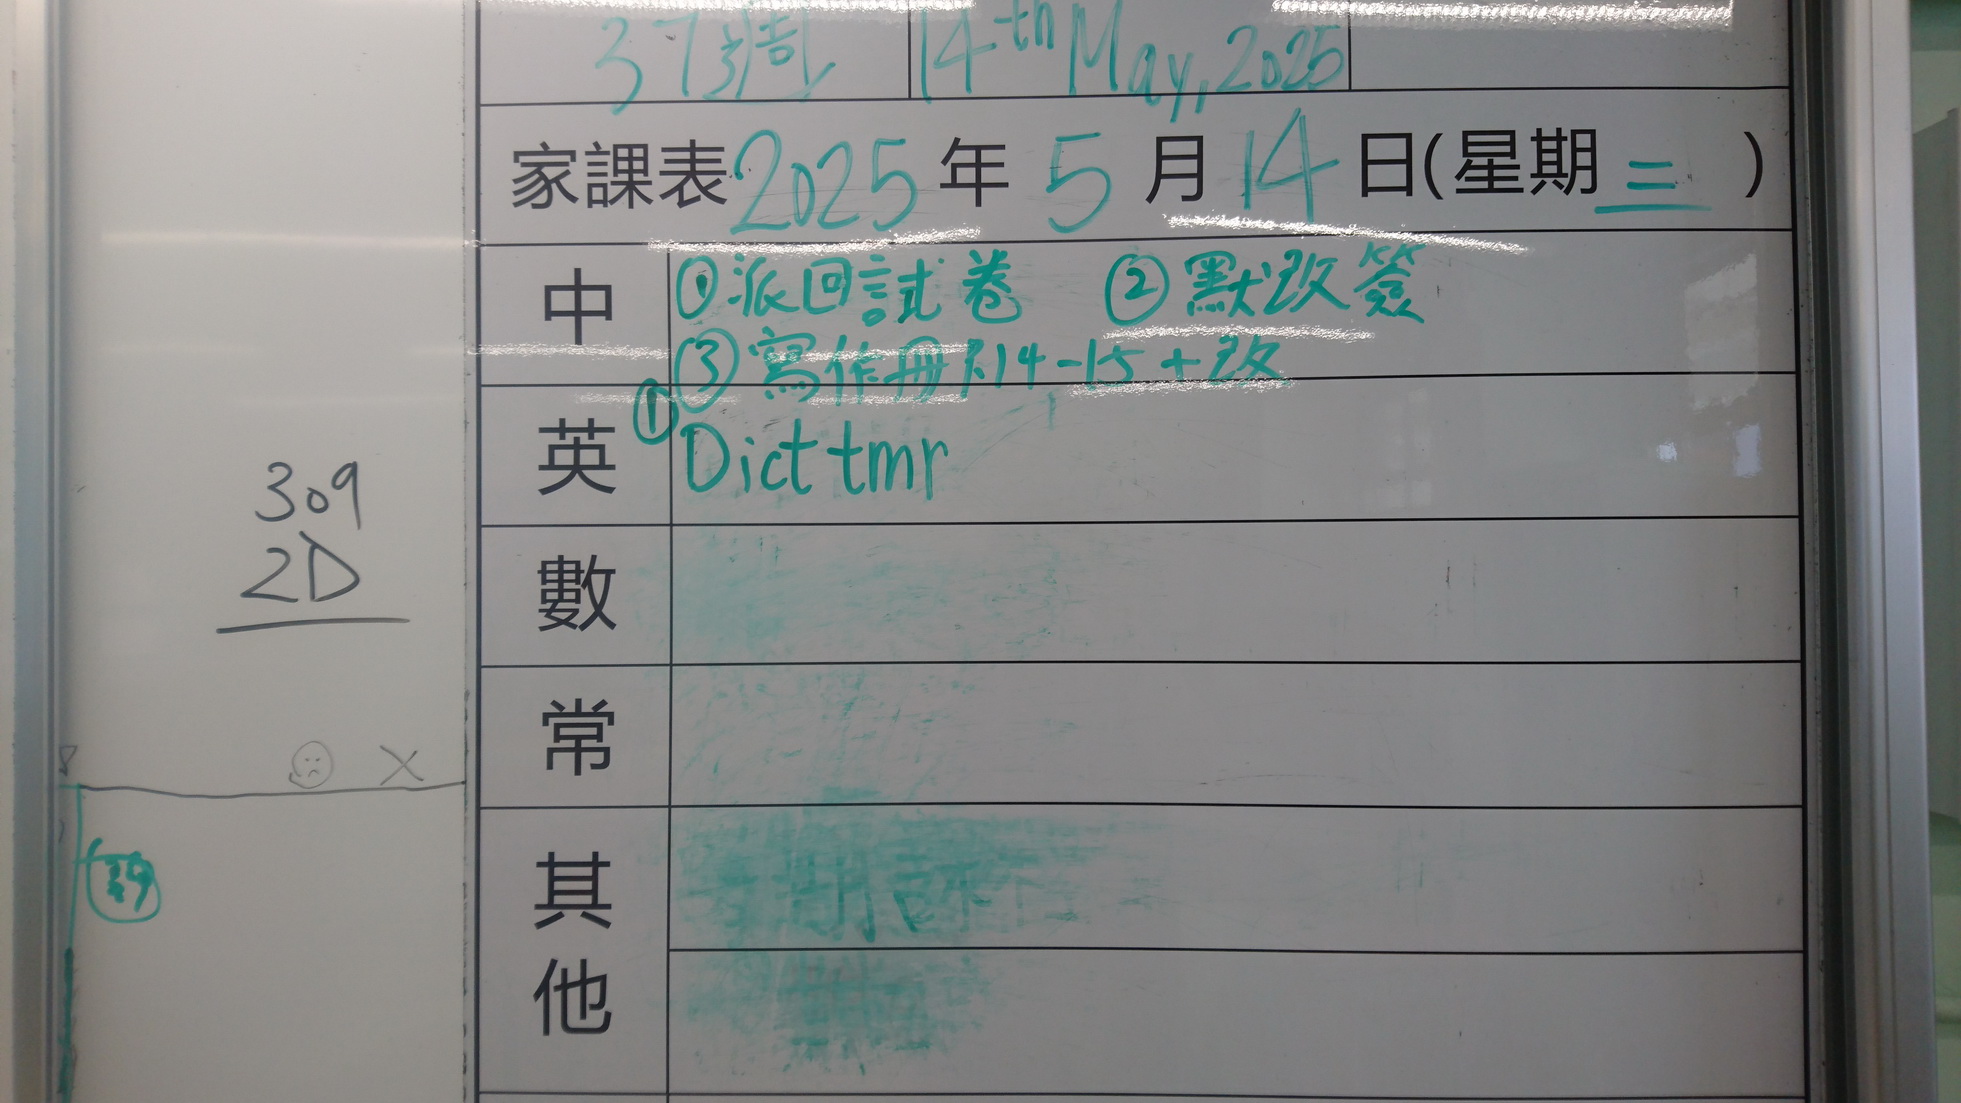 37週 14th May, 2025
家課表 2025 年 5 月 14 日(星期三)
中 ①派回試卷 ②默改簽
③寫作冊P.14-15+改
英 ①Dict tmr
數
常
其他
309
2D
39